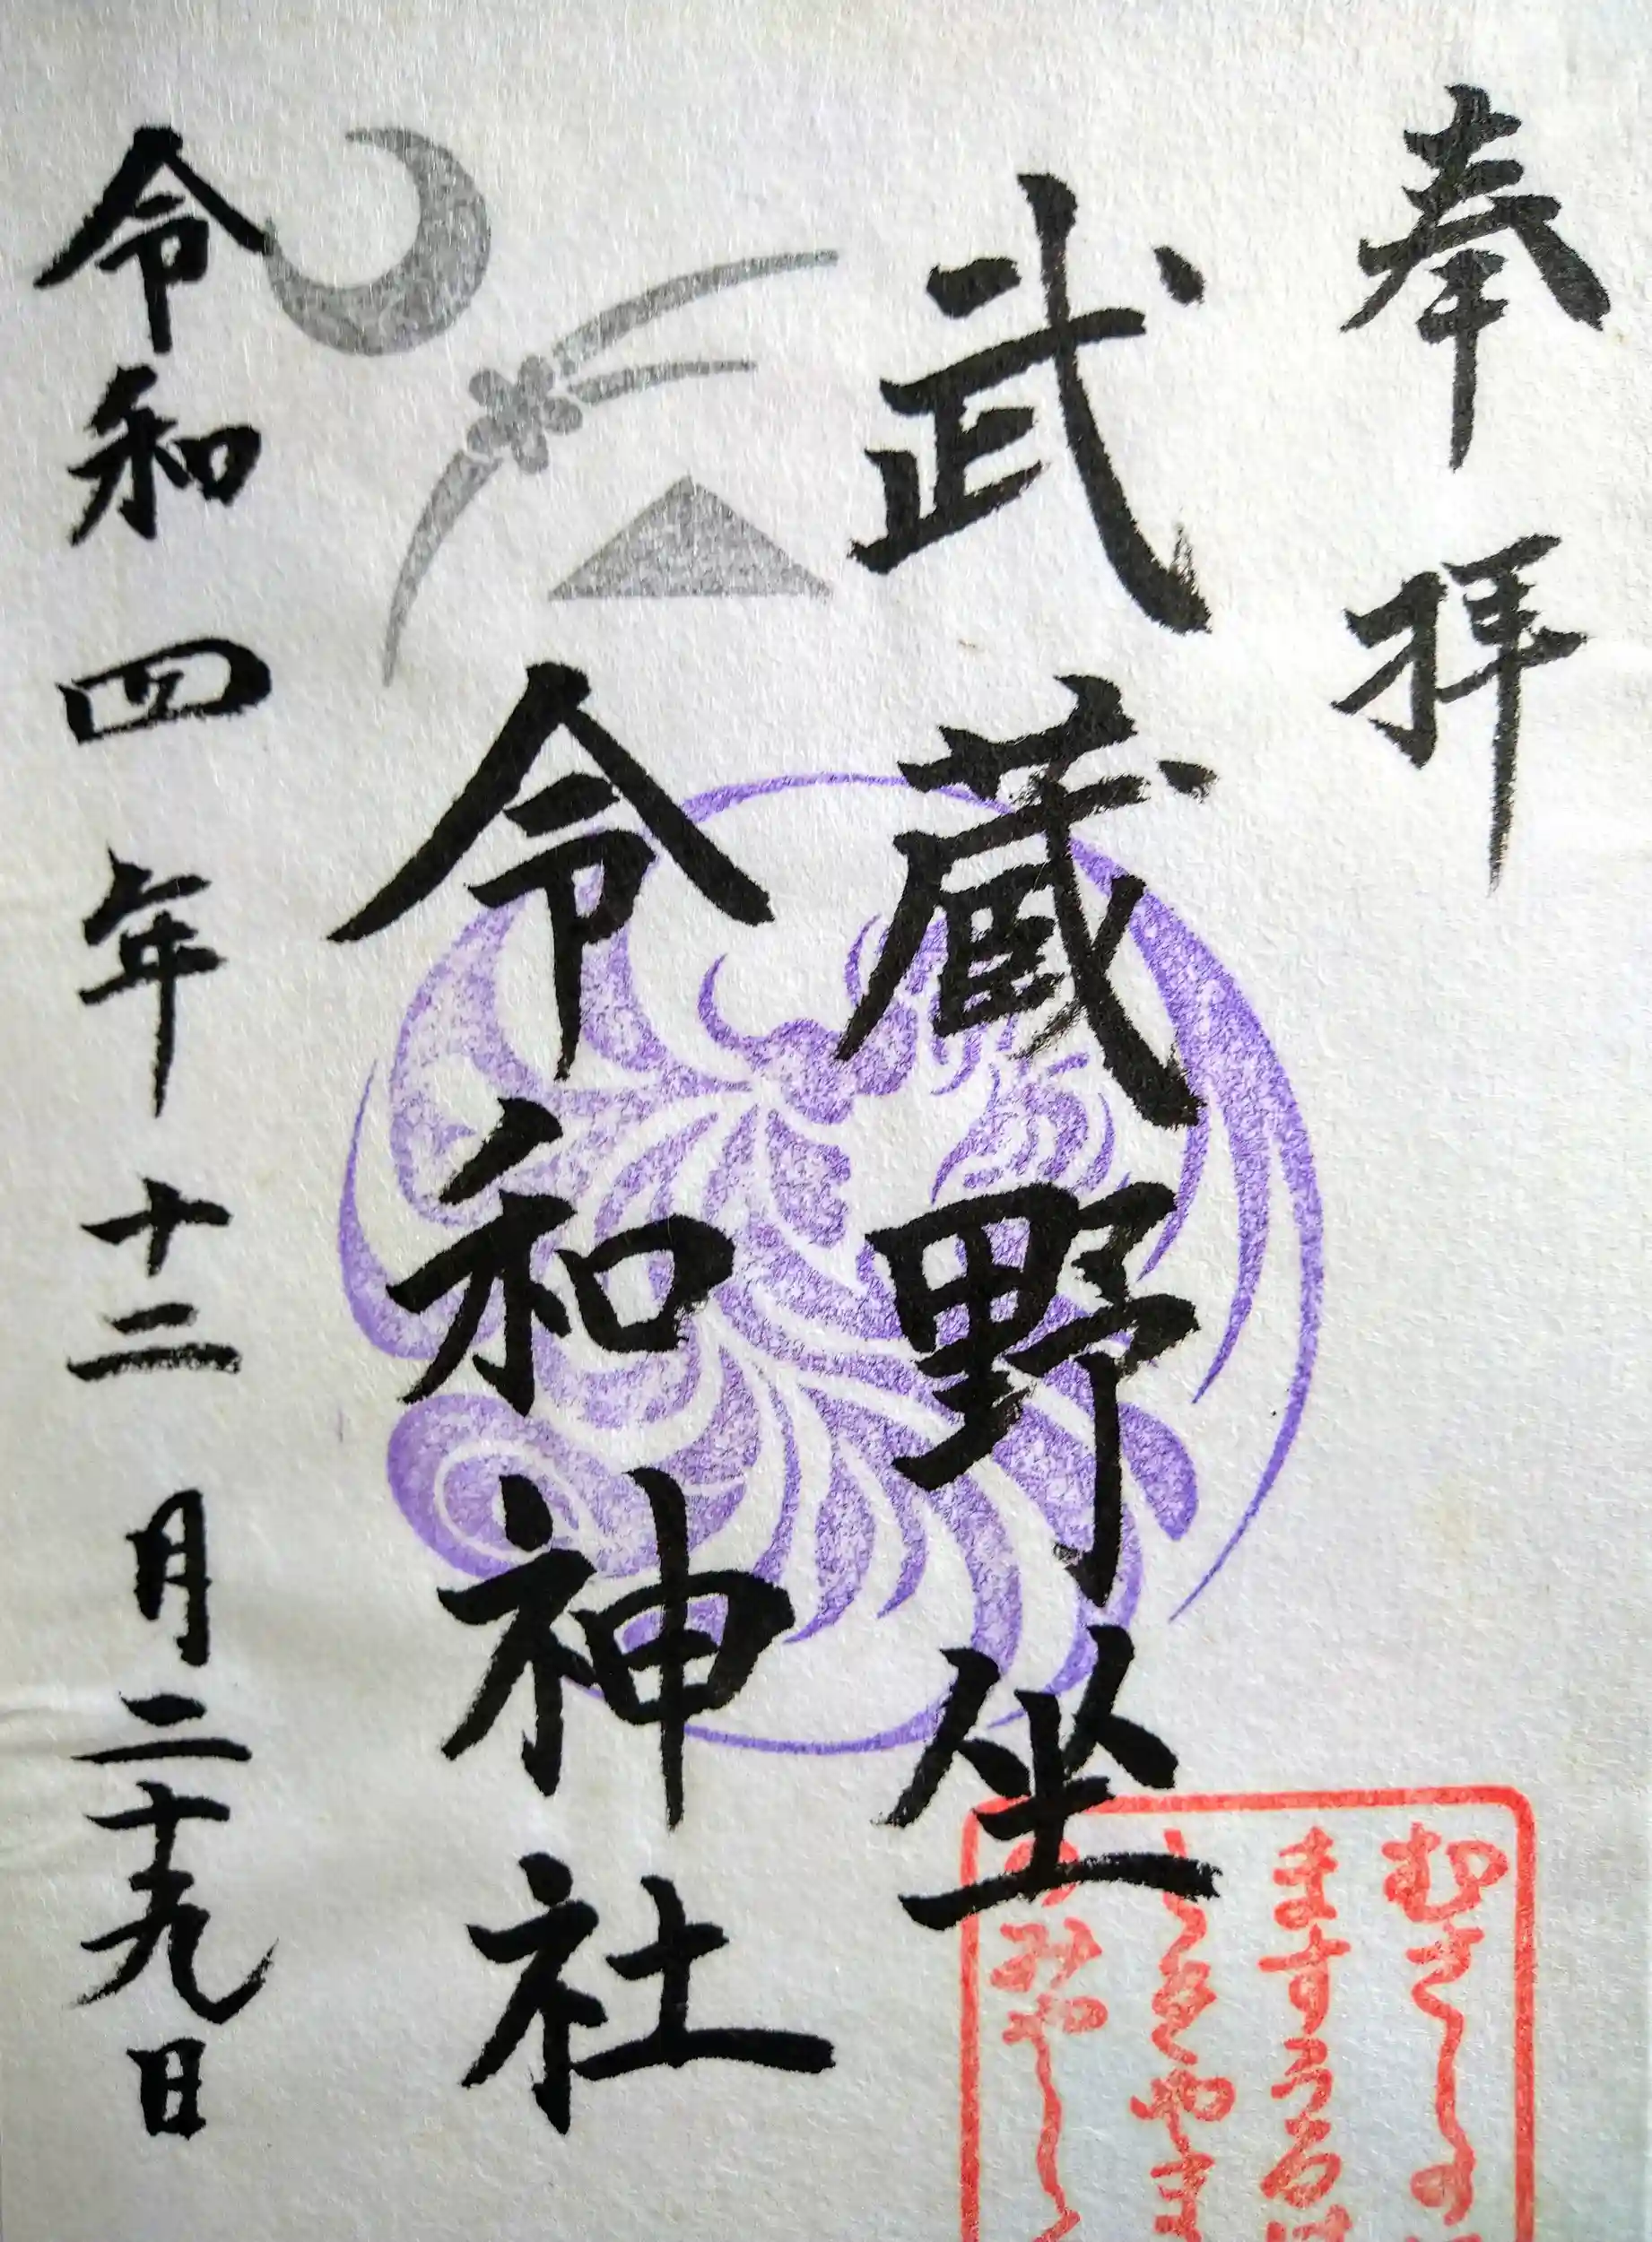 奉拝
武蔵野坐
令和神社
令和四年十二月二十九日
むさしのに
ますうるは
しきやま
のみやし